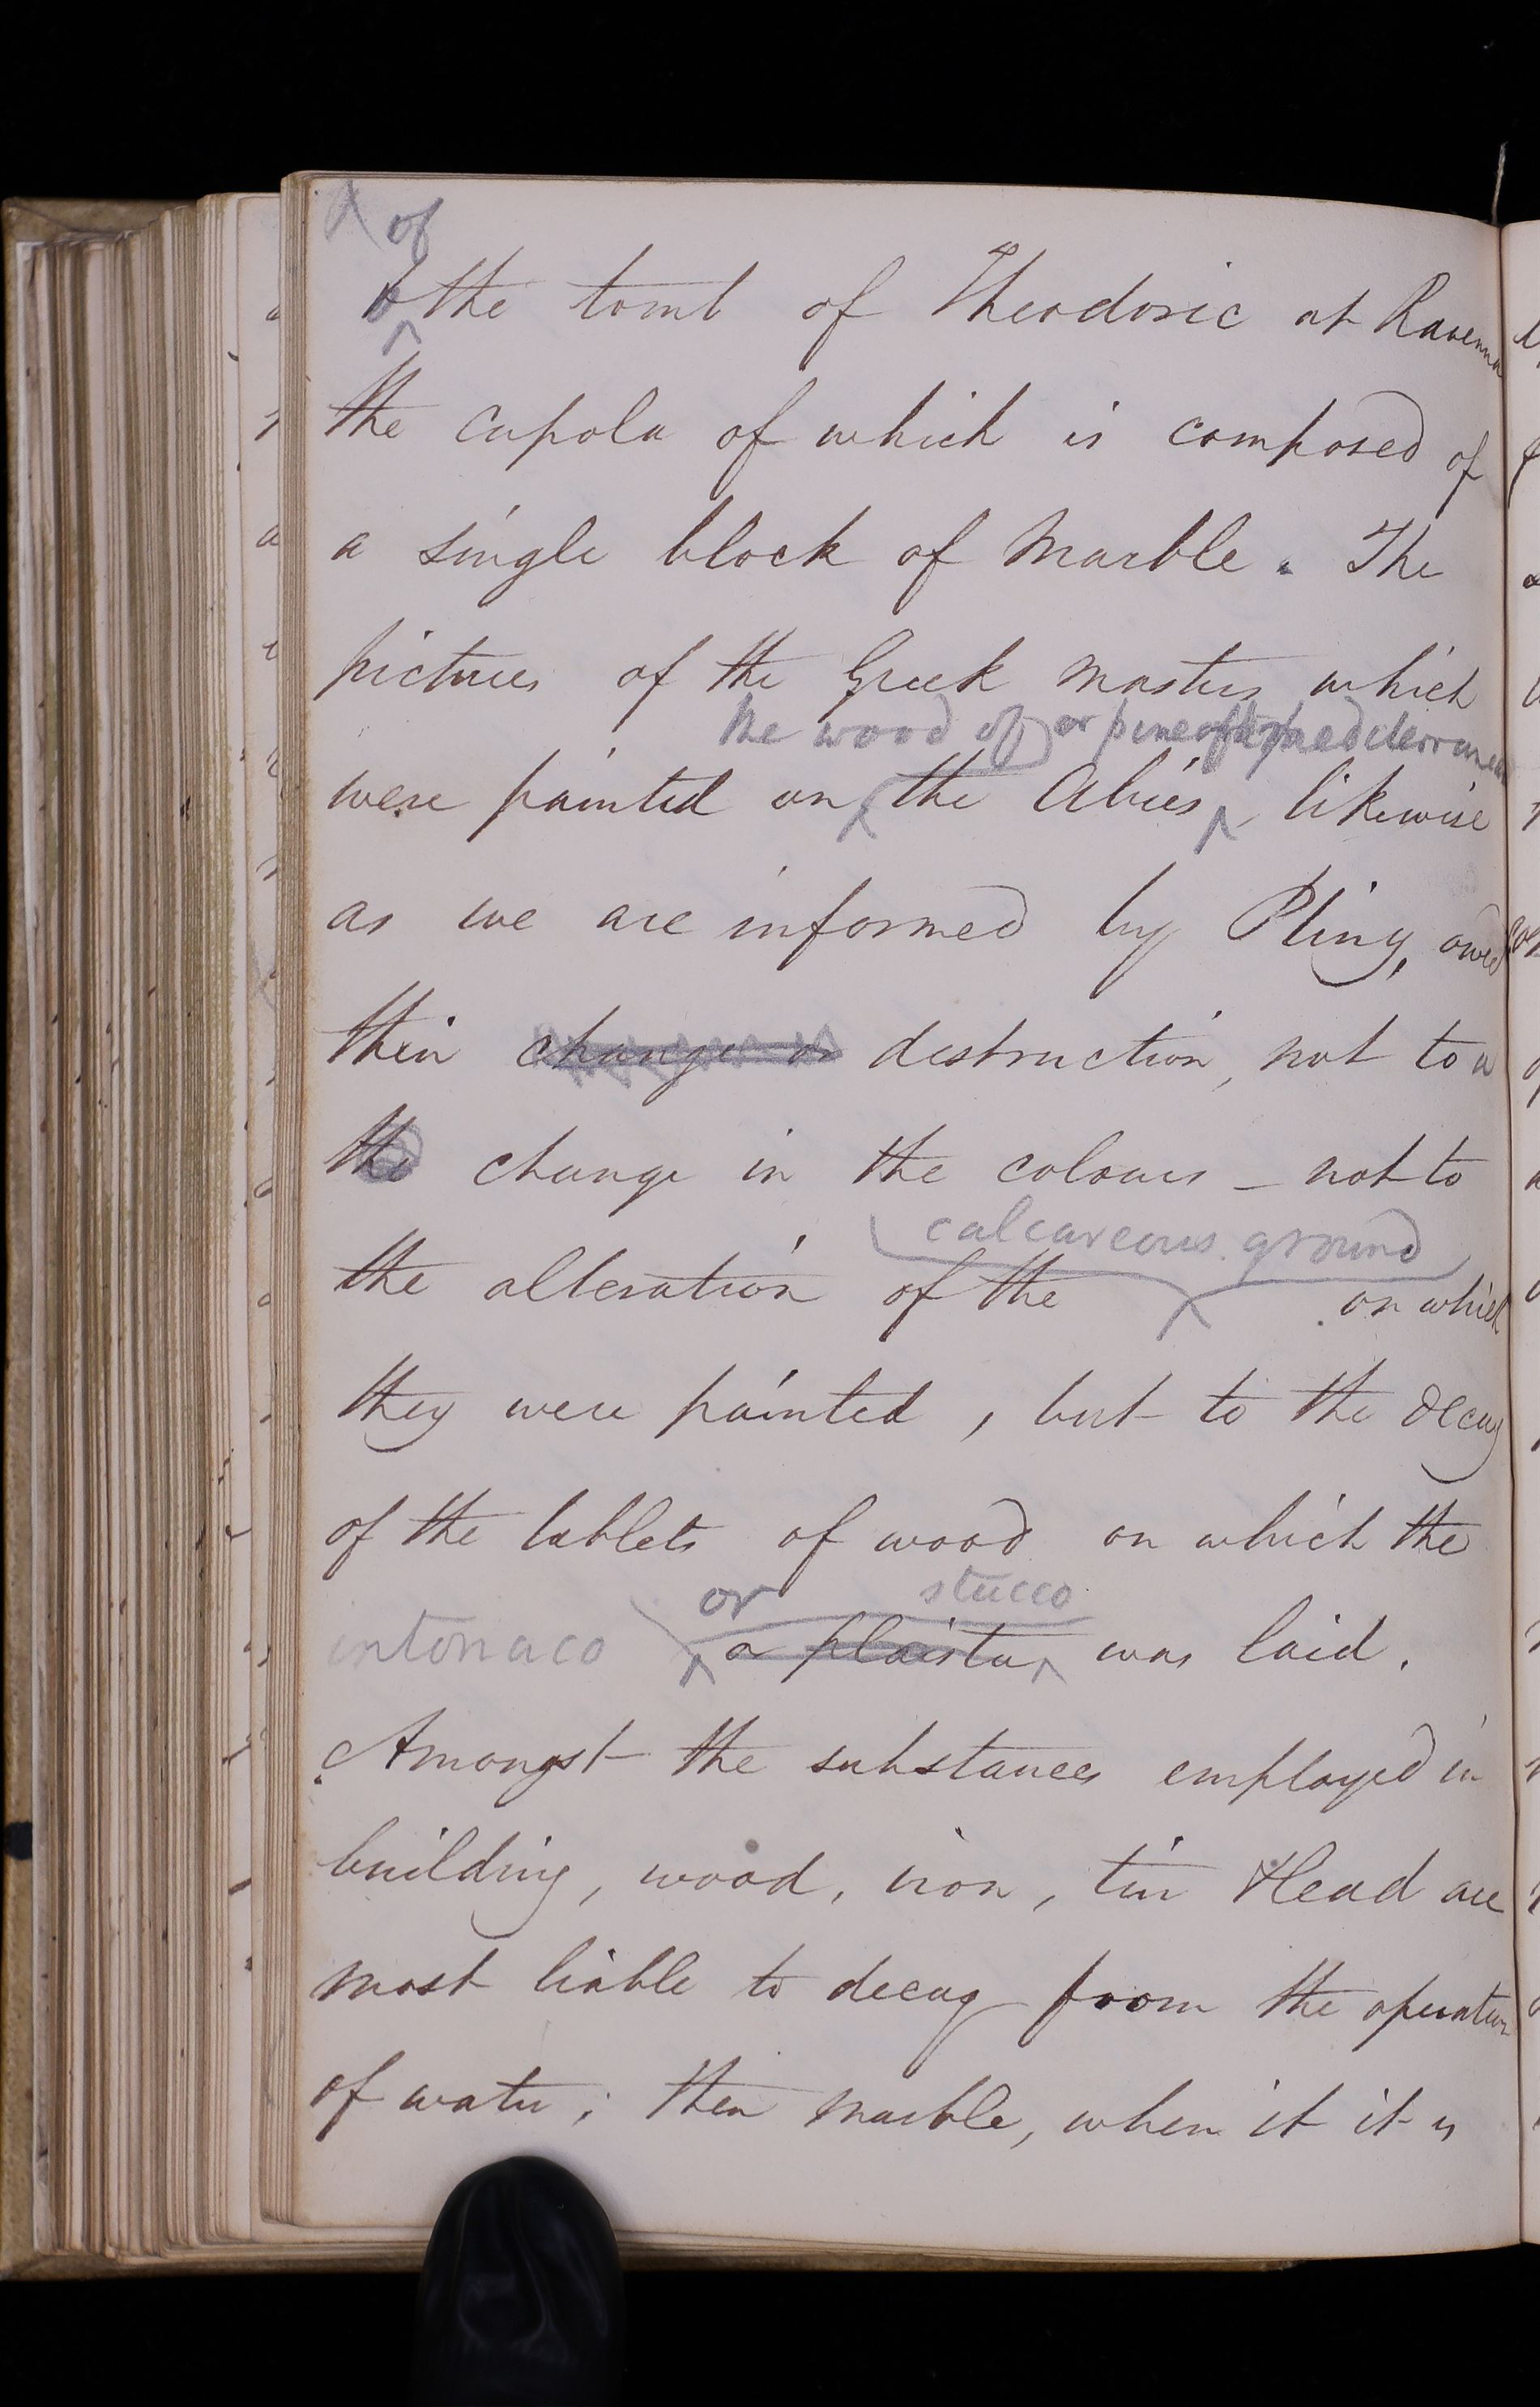 of
the tomb of Theodoric at Ravenna
the cupola of which is composed of
a single block of Marble. The
pictures of the Greek masters which
the wood of or pine of the mediterranean
were painted on the Abies likewise
as we are informed by Pliny, owed
their change or destruction, not to a
the change in the colours – not to
calcareous ground
the alteration of the on which
they were painted, but to the decay
of the tablets of wood on which the
or stucco
intonaco or plaister was laid.
Amongst the substances employed in
building, wood, iron, tin & lead are
most liable to decay from the operation
of water; then marble, when it it is